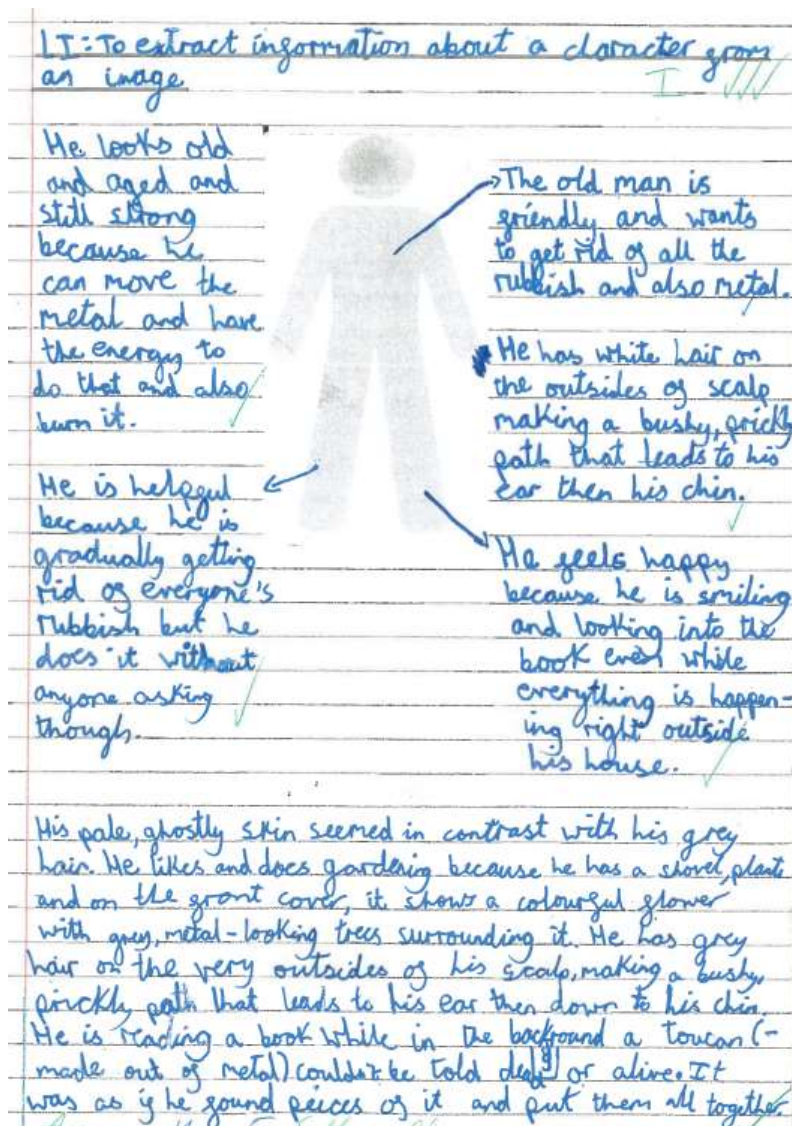 LI: To extract information about a character from
an image
I
He looks old
and aged and
still strong
because he
can move the
metal and have
the energy to
do that and also
burn it.
He is helpful
because he is
gradually getting
rid of everyone's
rubbish but he
does it without
anyone asking
though.
The old man is
friendly and wants
to get rid of all the
rubbish and also metal.
He has white hair on
the outsides of scalp
making a bushy, prickly
path that leads to his
ear then his chin.
He feels happy
because he is smiling
and looking into the
book even while
everything is happen-
ing right outside
his house.
His pale, ghostly skin seemed in contrast with his grey
hair. He likes and does gardening because he has a shovel, plants
and on the front cover, it shows a colourful flower
with grey, metal-looking trees surrounding it. He has grey
hair on the very outsides of his scalp, making a bushy,
prickly path that leads to his ear then down to his chin.
He is reading a book while in the backround a toucan (-
made out of metal) couldn't be told or alive. It
was as if he found peices of it and put them all together.